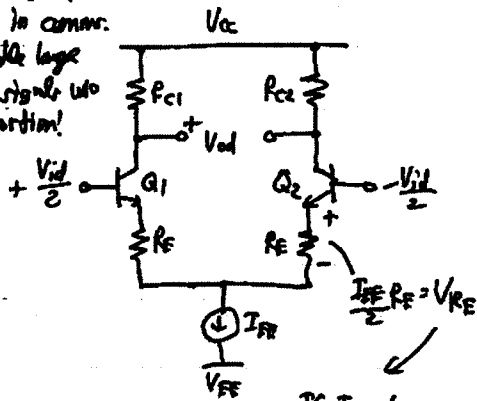 In comm.
large
signals w/o
Vcc
RC1
RC2
+
Vod
+ Vid/2
Q1
Q2
-Vid/2
RE
RE
+
-
IEE/2 RE = VRE
IEE
VEE